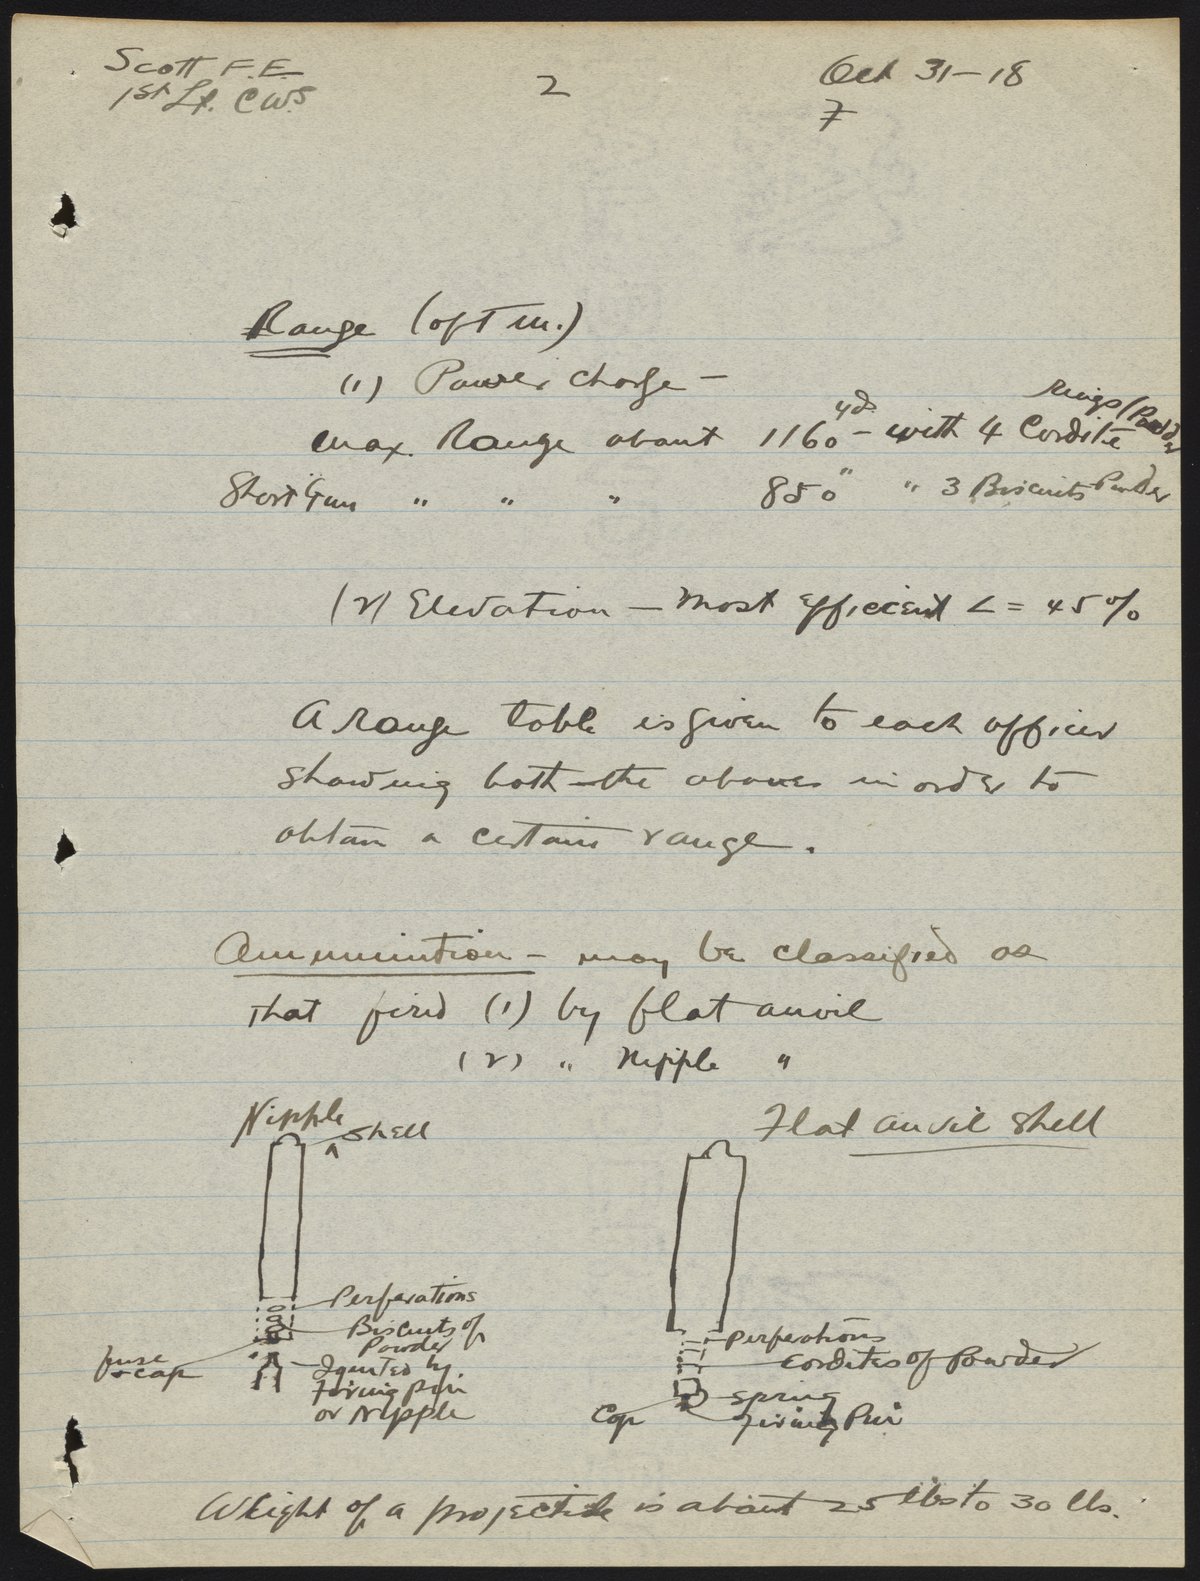 Scott F.E.
1st Lt. C.W.S.
2
Oct 31-18
7
Range (of T.M.)
(1) Power Charge —
max. Range about 1160 yds — with 4 Cordite rings (Powder
Short Gun " " " 850 " " 3 Biscuits Powder
(2) Elevation — Most efficient ∠ = 45%
A range table is given to each officer
showing both the above in order to
obtain a certain range.
Ammunition — may be classified as
that fired (1) by flat anvil
(2) " Nipple "
Nipple Shell
Perforations
Biscuits of
Powder
fuse
+ cap
Ignited by
Firing Pin
or Nipple
Flat anvil shell
Perforations
Cordites of Powder
Spring
Cap
Firing Pin
Weight of a projectile is about 25 lbs to 30 lbs.